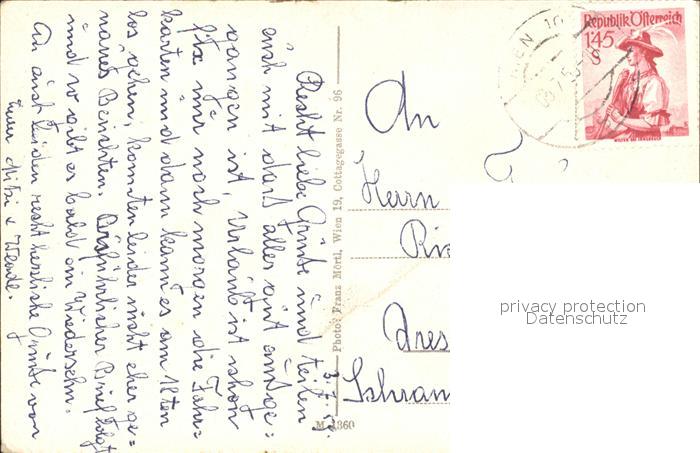 Recht liebe Grüße und teilen
euch mit daß alles gut ange=
gangen ist, Urlaub ist schon
fix nur noch morgen die Fahr=
karten und dann kann es am 18ten
los gehen, konnten leider nicht eher ge=
naues Berichten. Ausführlicher Brief folgt
und so gibt es bald ein Wiedersehn.
An euch beiden recht herzliche Grüße von
Eurer Mitzi u
3.7.
Photo: Franz Mörtl, Wien 19, Cottagegasse Nr. 96
M 1360
An
Herrn
Dres
Schran
WIEN 10
Republik Österreich
1'45
S
privacy protection
Datenschutz